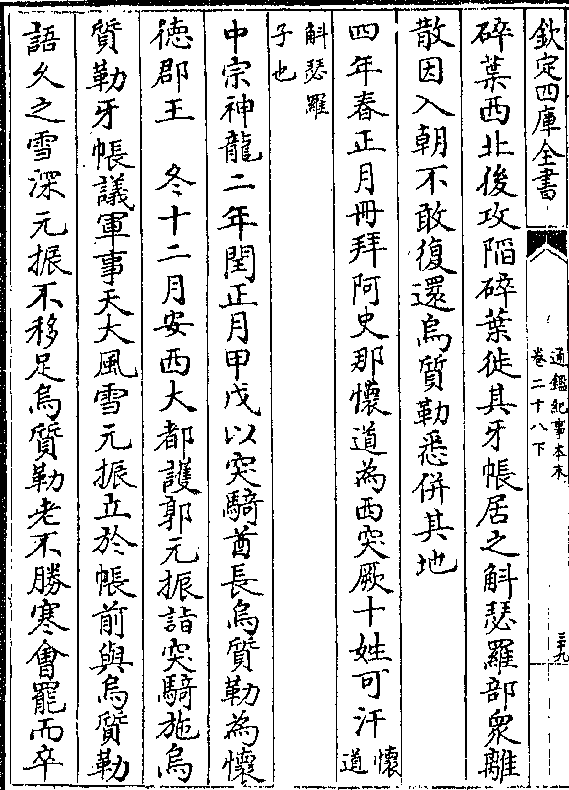 欽定四庫全書
通鑑紀事本末
卷二十八下
三九
碎葉西北後攻陷碎葉徙其牙帳居之斛瑟羅部衆離
散因入朝不敢復還烏質勒悉併其地
四年春正月冊拜阿史那懷道為西突厥十姓可汗懷道
斛瑟羅
子也
中宗神龍二年閏正月甲戌以突騎酋長烏質勒為懷
徳郡王　冬十二月安西大都護郭元振詣突騎施烏
質勒牙帳議軍事天大風雪元振立於帳前與烏質勒
語久之雪深元振不移足烏質勒老不勝寒會罷而卒